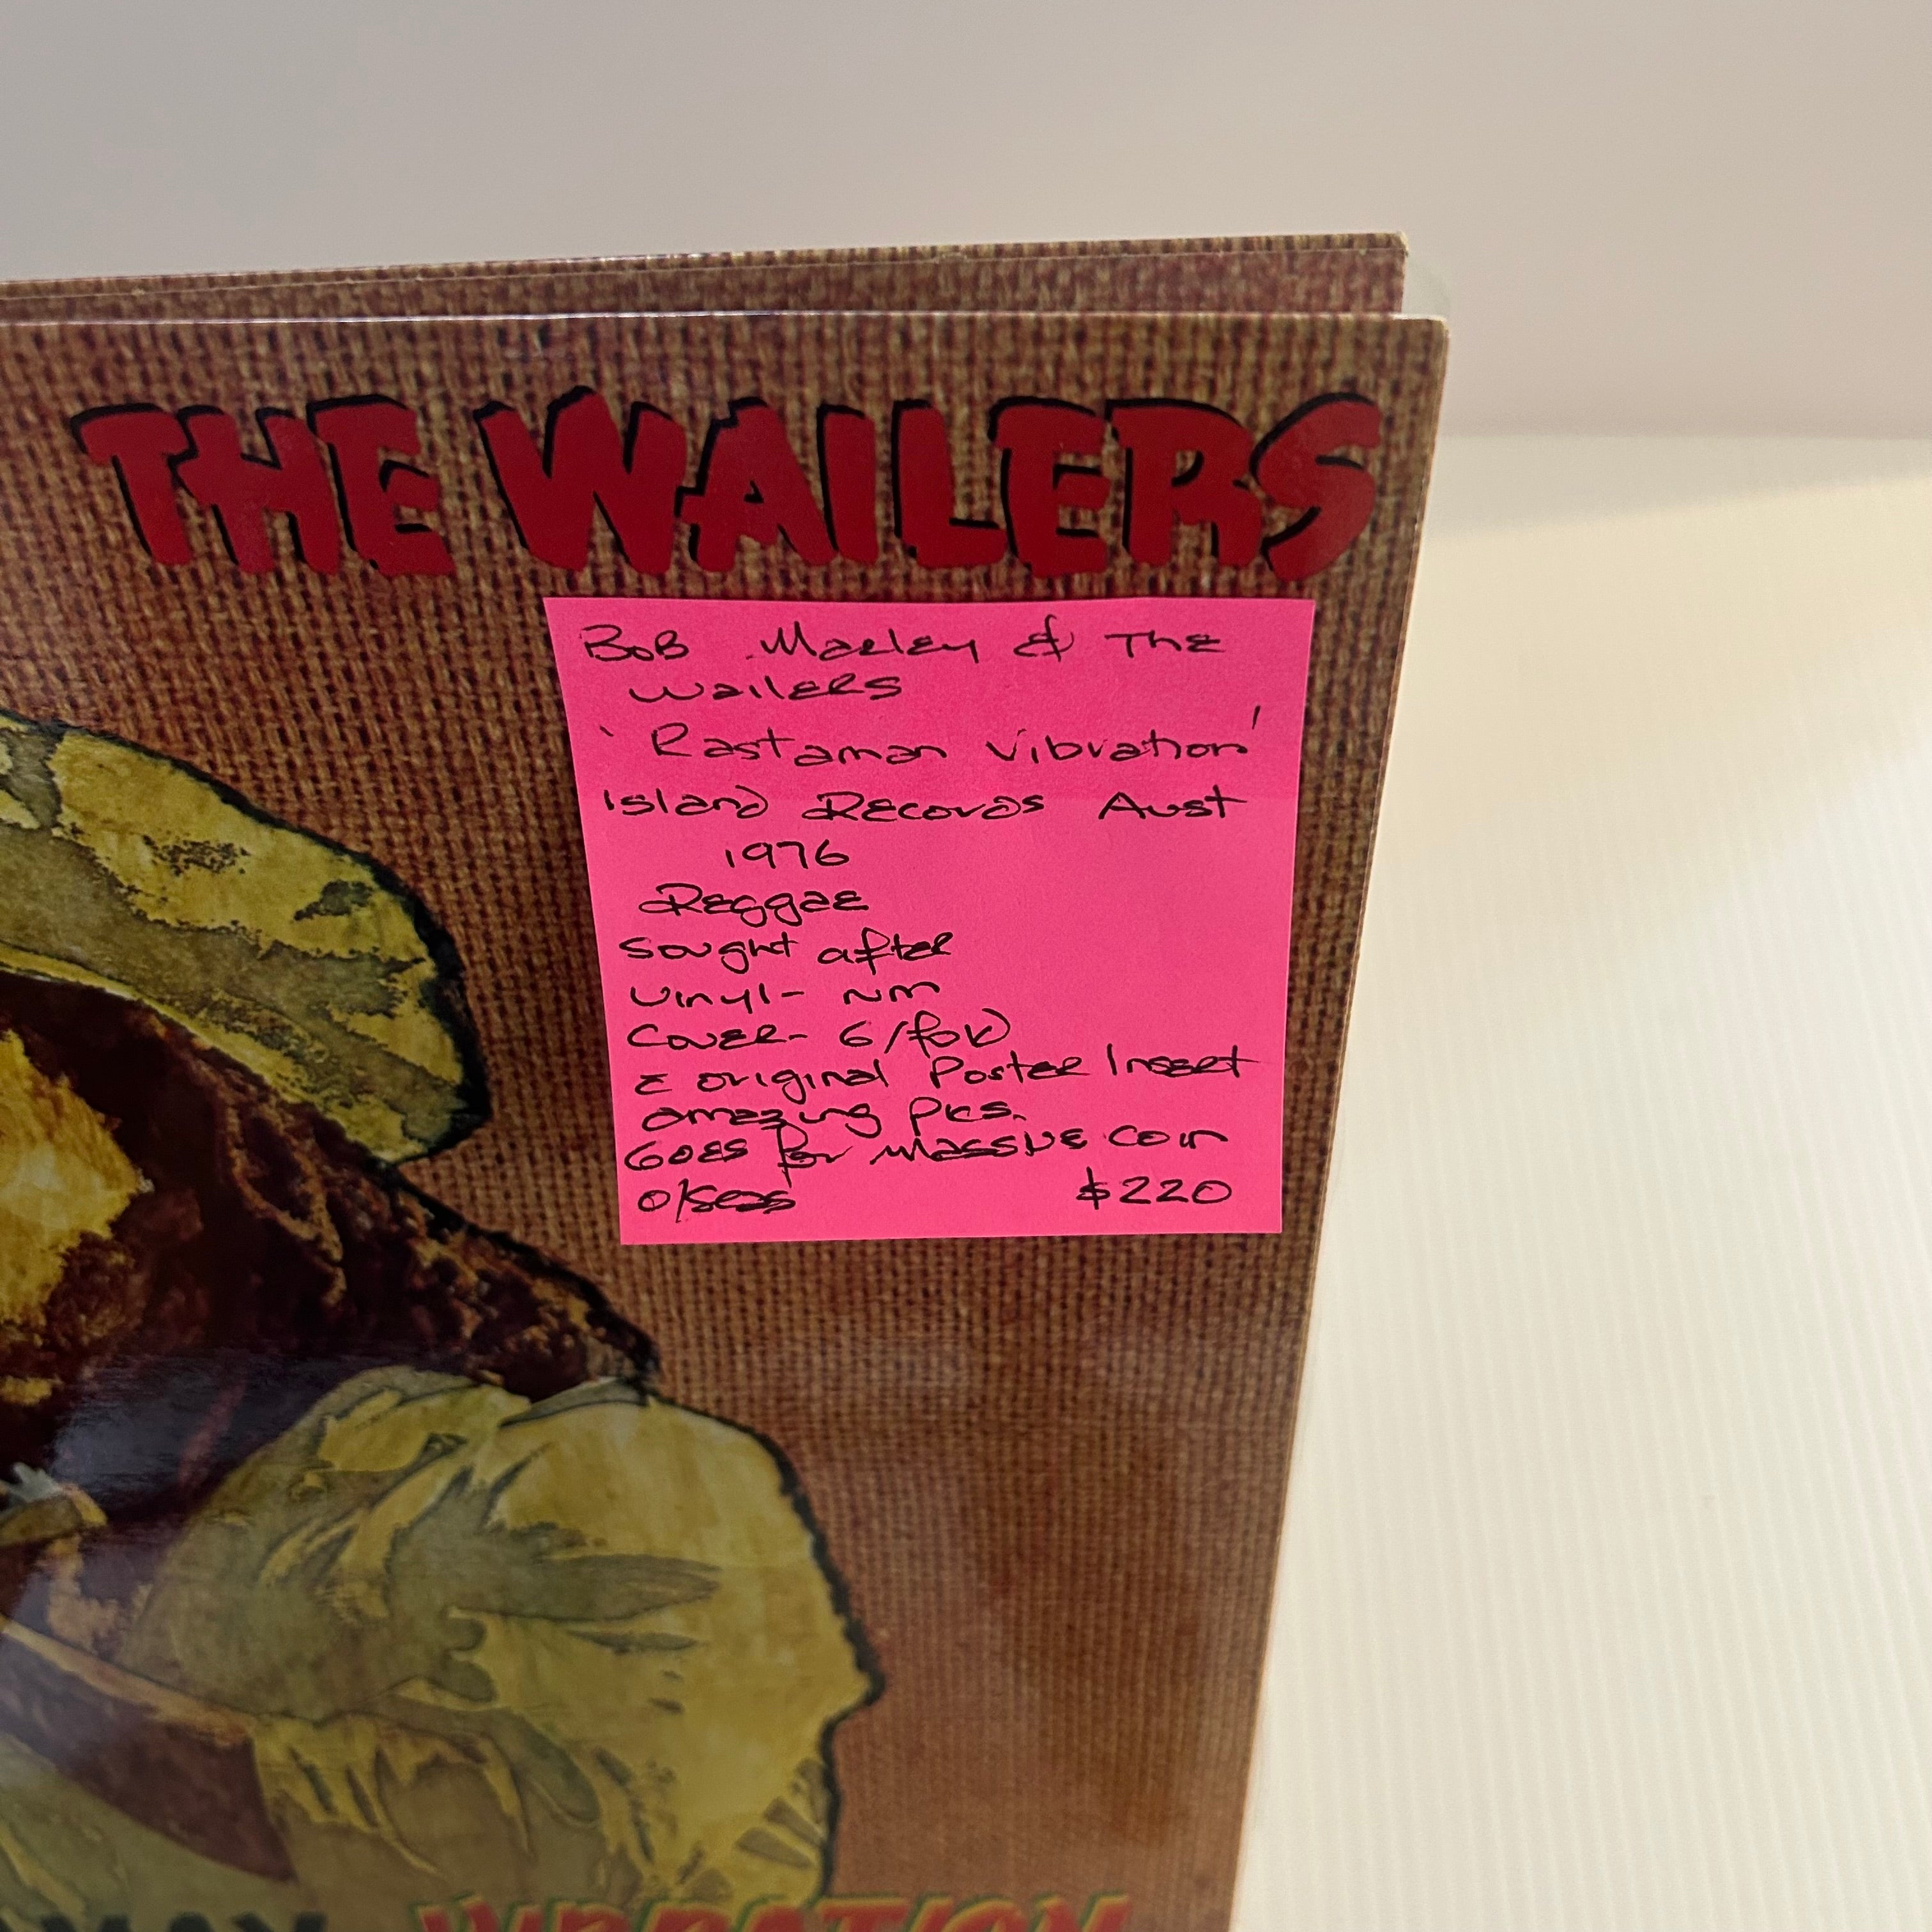 THE WAILERS
BOB Marley & THE
WAILERS
'Rastaman Vibration'
Island Records Aust
1976
Reggae
Sought after
Vinyl - NM
Cover - G/fold
c original Poster Insert
amazing pics.
Goes for Massive coin
o/seas $220
VIBRATION